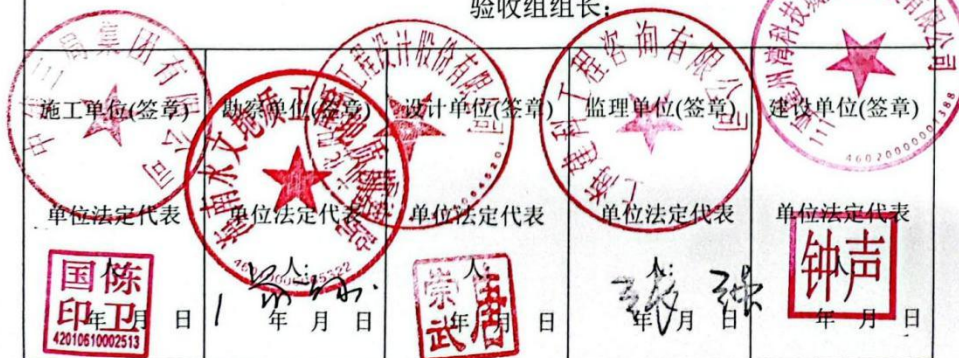 验收组组长:
施工单位(签章)
勘察单位(签章)
设计单位(签章)
监理单位(签章)
建设单位(签章)
单位法定代表人:
单位法定代表人:
单位法定代表人:
单位法定代表人:
单位法定代表
年 月 日
年 月 日
年 月 日
年 月 日
年 月 日
集团有限公司
海南水文地质工程地质勘察院
工程设计股份有限公司
工程咨询有限公司
国陈
印卫
42010610002513
崇唐
武
钟声